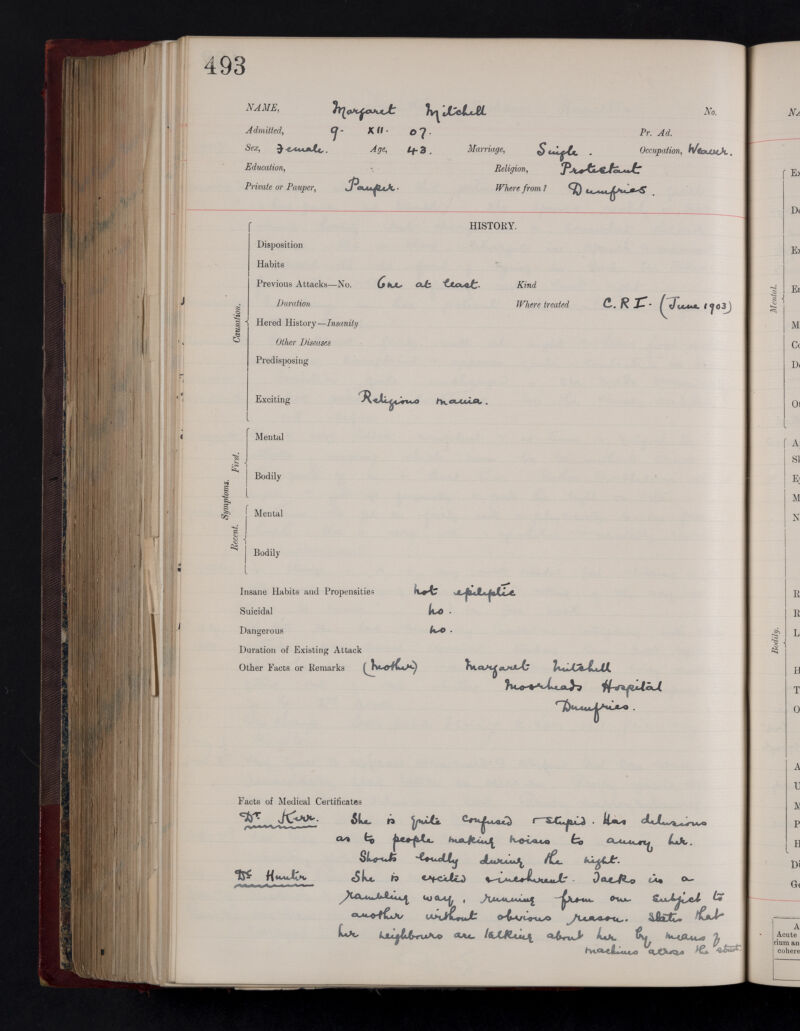 493
NAME, Margaret Mitchell No.
Admitted, 9. XII. 07. Pr. Ad.
Sex, Female. Age, 43. Marriage, Single. Occupation, Weaver.
Education, Religion, Protestant
Private or Pauper, Pauper. Where from? Dumfries.
HISTORY.
Causation.
Disposition
Habits
Previous Attacks—No. One at least. Kind
Duration Where treated C.R.I. (June 1903)
Hered History—Insanity
Other Diseases
Predisposing
Exciting Religious mania.
Symptoms.
First.
Mental
Bodily
Recent.
Mental
Bodily
Insane Habits and Propensities not epileptic
Suicidal no.
Dangerous no.
Duration of Existing Attack
Other Facts or Remarks (Mother) Margaret Mitchell
Moorheads Hospital
Dumfries.
Facts of Medical Certificates
Dr Kerr. She is quite confused & stupid. Has delusions
as to people making noises to annoy her.
Shouts loudly during the night.
Dr Hunter She is excited & incoherent. Talks in a
rambling way, running from one subject to
another without obvious reason. States that
her neighbours are talking about her by means of
machines across the street
Mental.
Bodily.
A
Acute
rium an
cohere